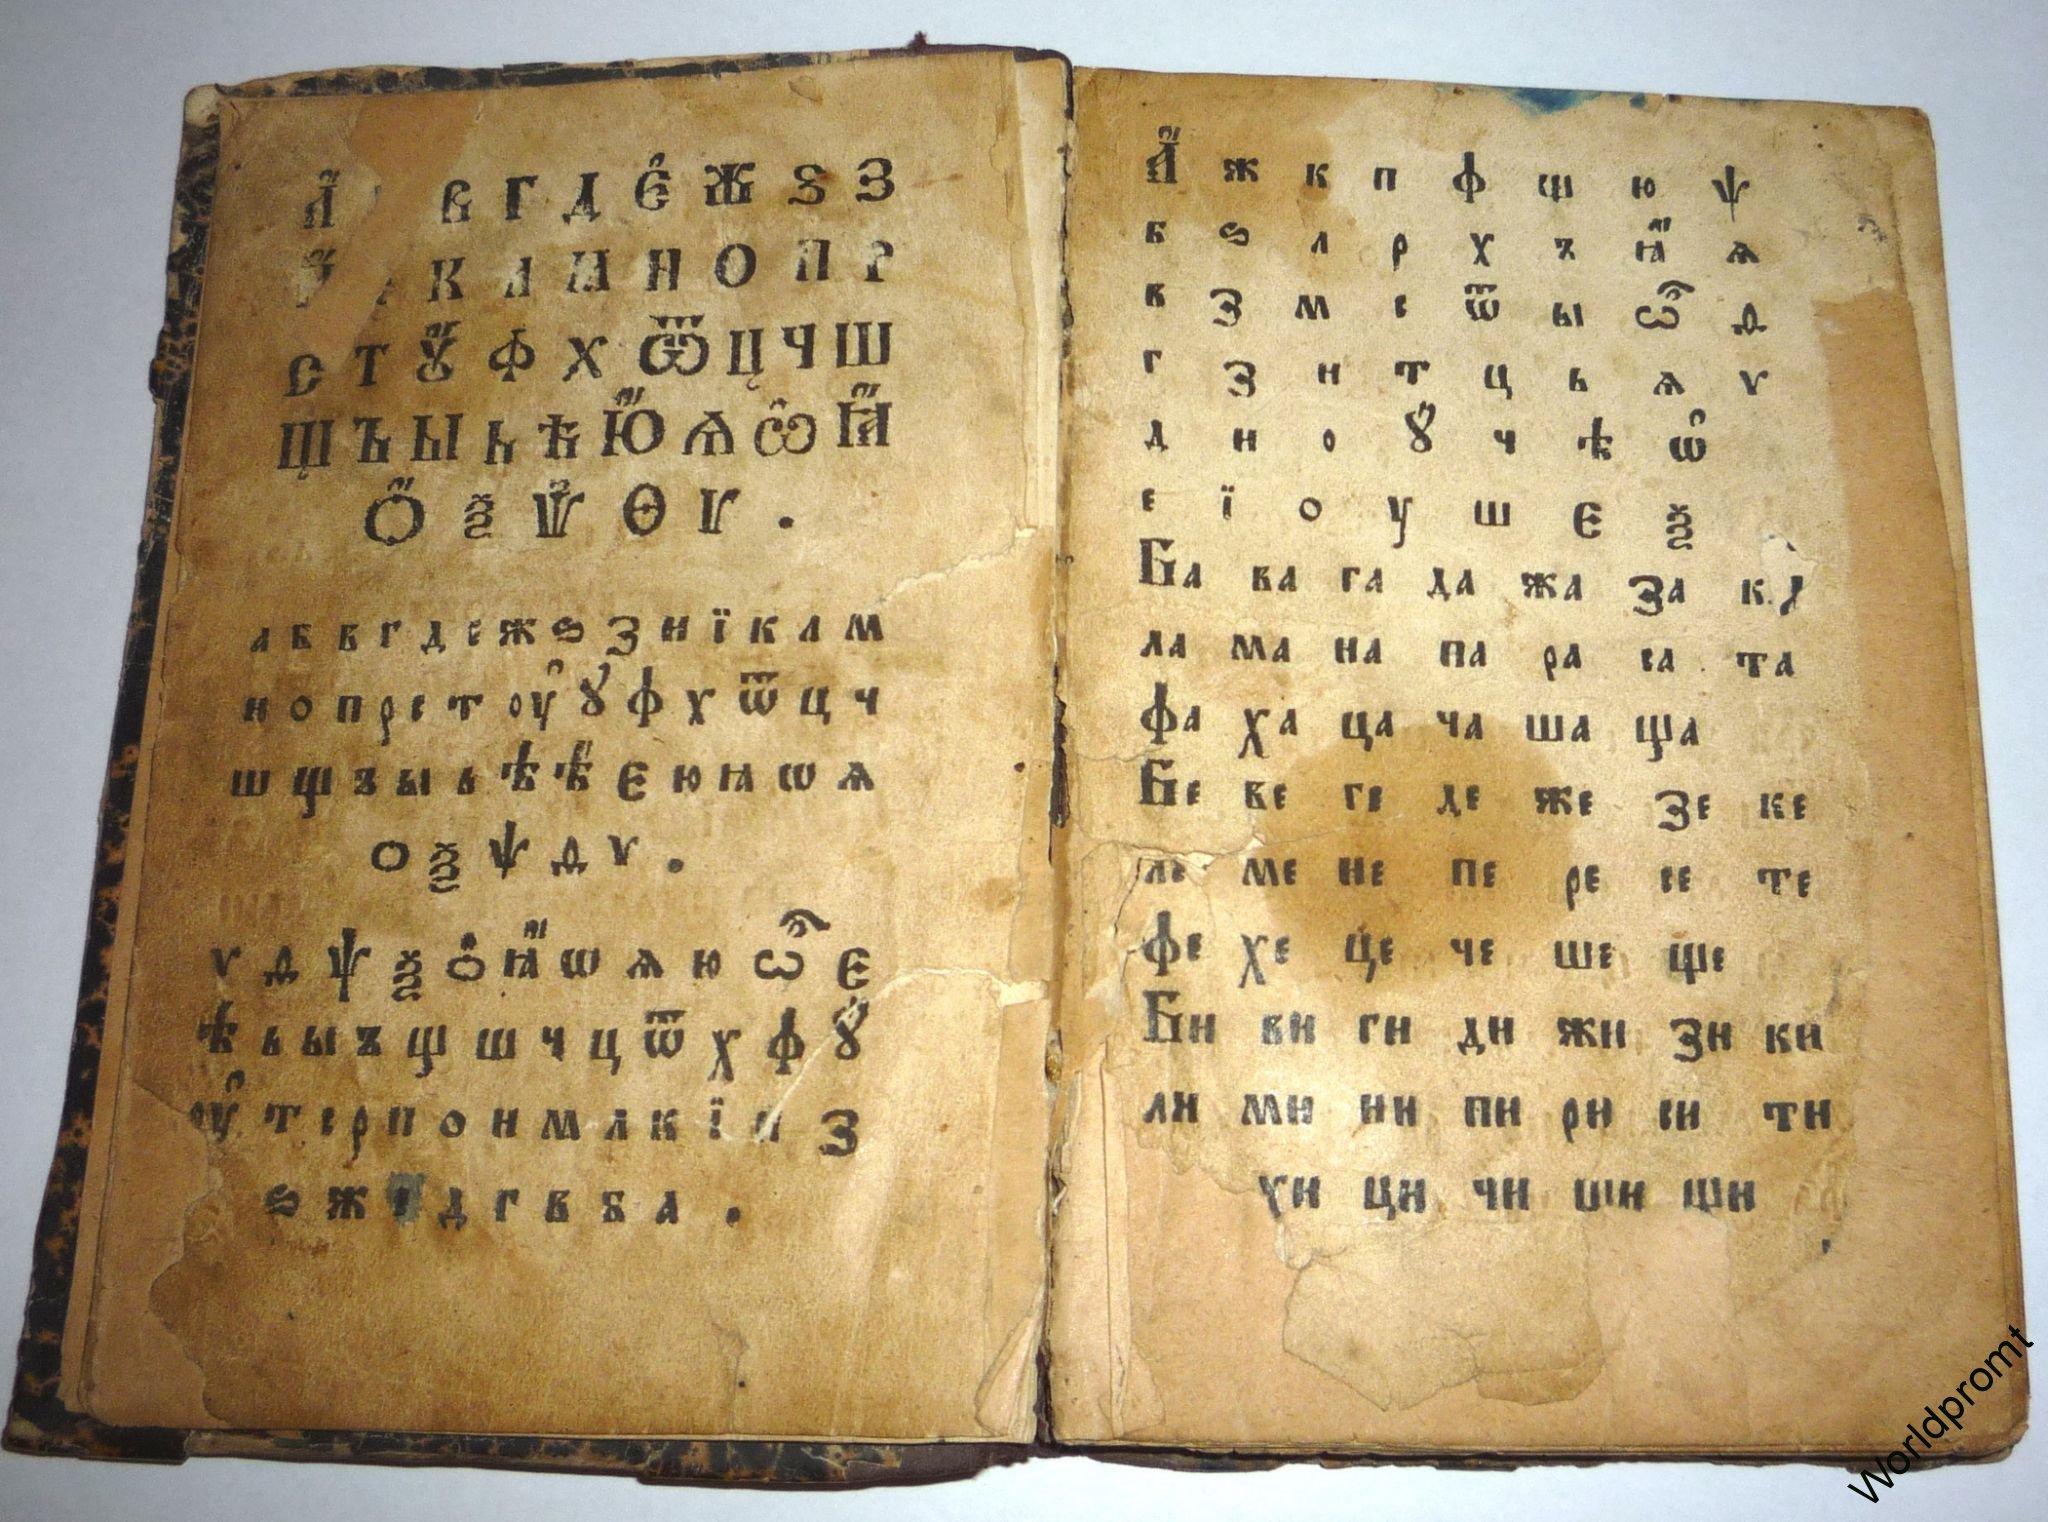 А҆́ В Г Д Є҆ Ж Ѕ З
К Л М Н О П Р
С Т Ꙋ҆́ Ф Х Ѿ Ц Ч Ш
Щ Ъ Ы Ь Ѣ Ю҆́ Ѫ Ѽ Ꙗ҆́
Ѻ҆́ Ѯ Ѱ҆ Ѳ Ѵ .
а б в г д е ж ѕ з и ї к л м
н о п р с т оу҆ ꙋ́ ф х ѿ ц ч
ш щ ъ ы ь ѣ ѣ҆ є ю ꙗ ѡ ѧ
ѻ ѯ ѱ ѳ ѵ .
ѵ ѳ ѱ ѯ ѻ҆́ ꙗ҆́ ѡ ѧ ю ѽ є
ѣ ь ы ъ щ ш ч ц ѿ х ф ꙋ҆́
оу҆ т с р п о н м л к ї и з
ѕ ж е д г в б а .
А҆́ ж к п ф щ ю ѱ
б ѕ л р х ъ ꙗ҆́ ѧ
в з м с ѿ ы ѽ ѳ
г з н т ц ь ѧ ѵ
д и о ꙋ҆́ ч ѣ ѡ҆
е ї о у ш є ѯ
Ба ва га да жа за ка
ла ма на па ра са та
фа ха ца ча ша ща
Бе ве ге де же зе ке
ле ме не пе ре се те
фе хе це че ше ще
Би ви ги ди жи зи ки
ли ми ни пи ри си ти
хи ци чи ши щи
Worldpromt